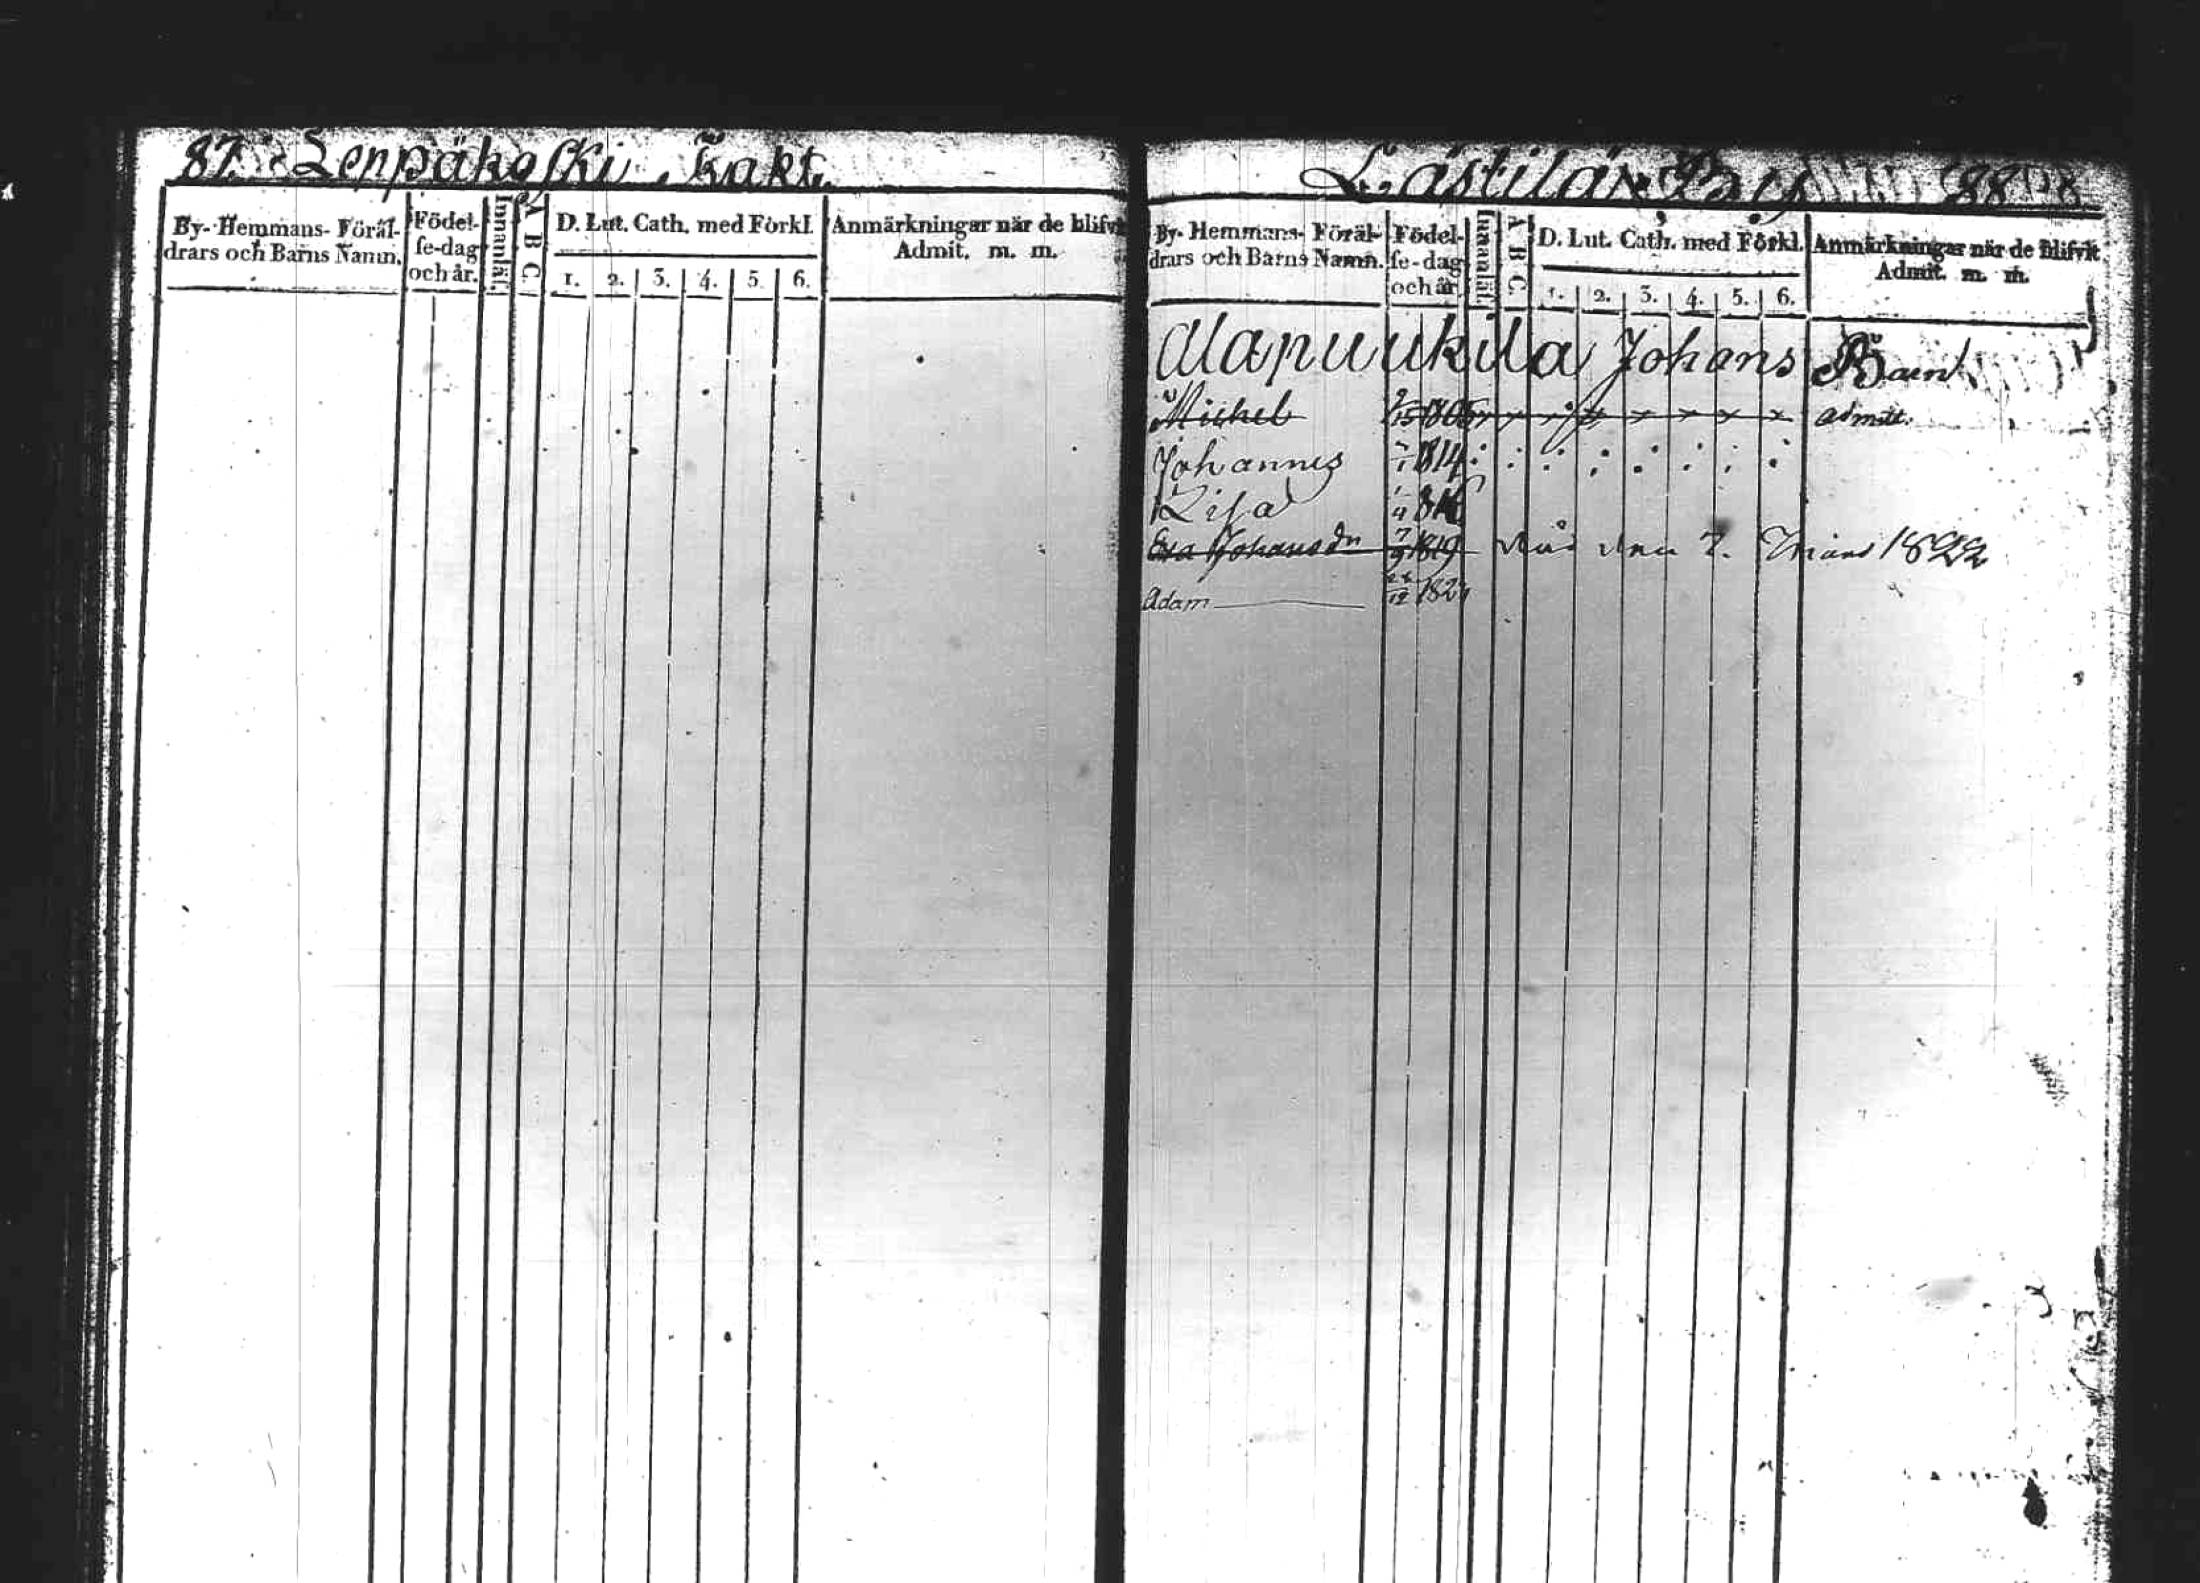 87. Lenpäkoski Takt.
By- Hemmans- Föräl- drars och Barns Namn.
Födel- se-dag och år.
Innanläs.
A B C.
D. Lut. Cath. med Förkl.
1. 2. 3. 4. 5. 6.
Anmärkningar när de blifvit Admit. m. m.
Lästilä By 88
By- Hemmans- Föräl- drars och Barns Namn.
Födel- se-dag och år.
Innanläs.
A B C.
D. Lut. Cath. med Förkl.
1. 2. 3. 4. 5. 6.
Anmärkningar när de blifvit Admit. m. m.
Alapuukila Johans Barn
Michel 1805 x x x x x x admitt.
Johannes 7/1 1814 : : : : : : : :
Lisa 1/4
Eva Johansdn 7/9 1819 den 7. Mars 1822
Adam 12